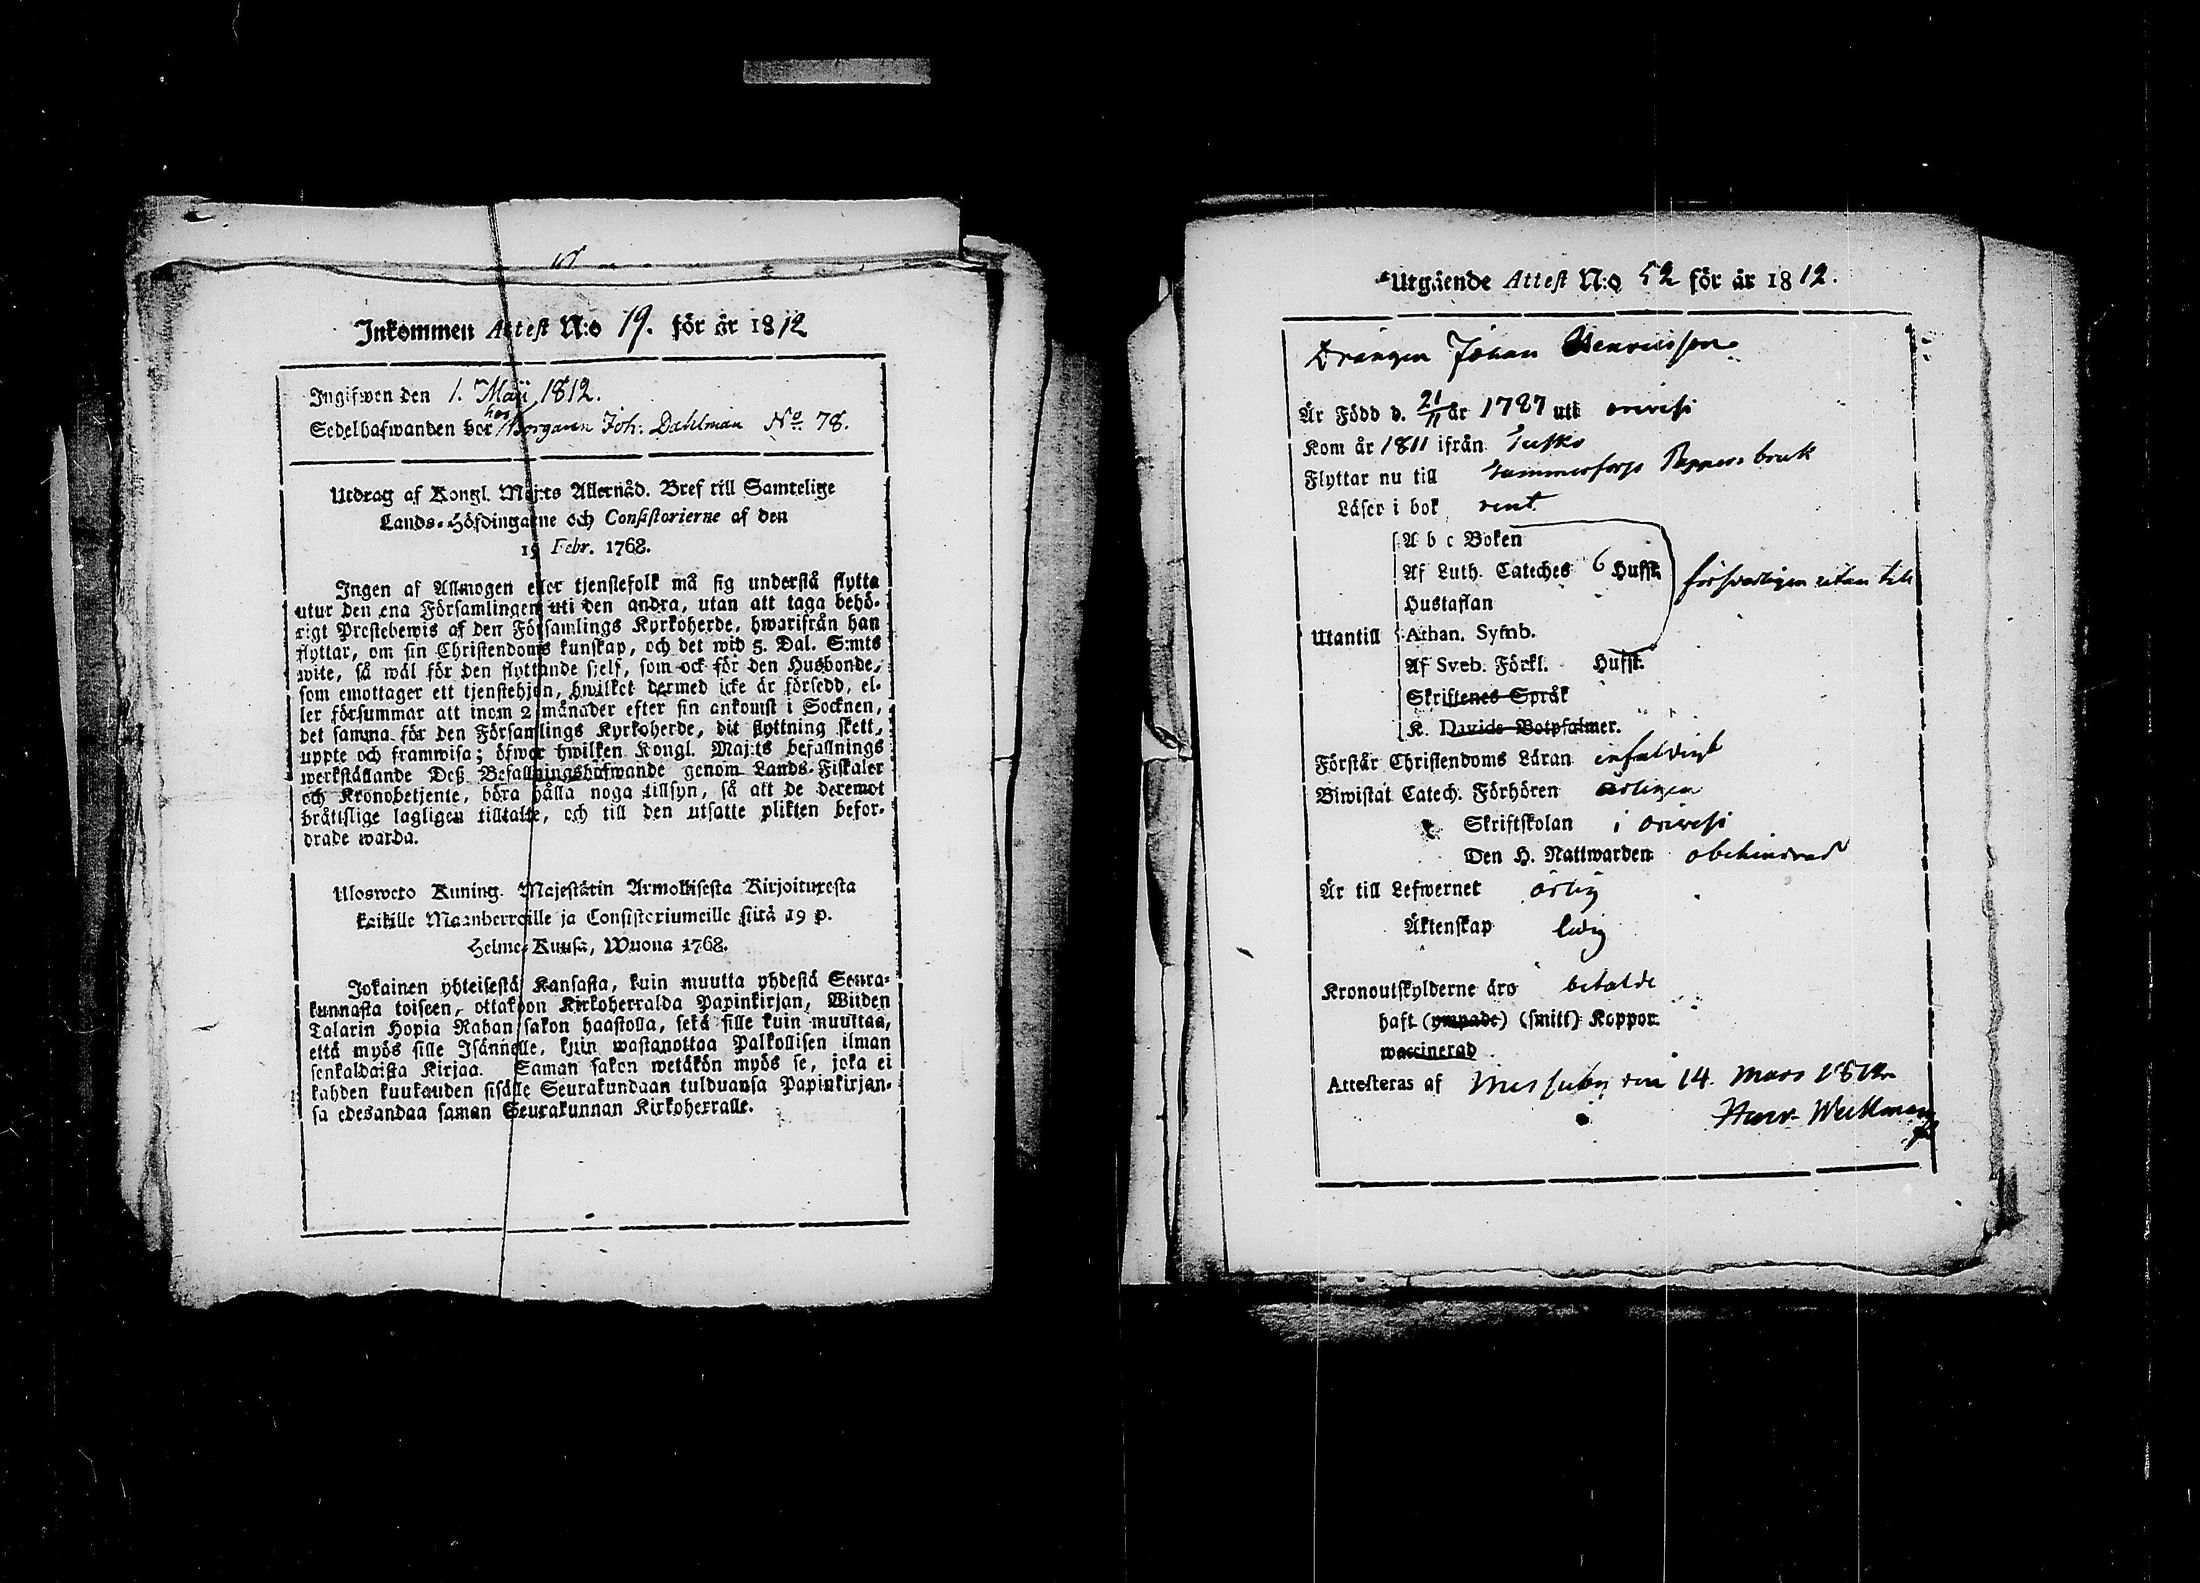 Inkommen Attest N:o 19. för år 1812
Ingifwen den 1. Maji 1812.
hos
Sedelhafwanden bor Borgaren Joh: Dahlman No. 78.
Utdrag af Kongl. Maj:ts Allernåd. Bref till Samtelige
Lands-Höfdingarne och Consistorierne af den
19 Febr. 1768.
Ingen af Allmogen eller tjenstefolk må sig understå flytta
utur den ena Församlingen uti den andra, utan att taga behö-
rigt Prestebewis af den Församlings Kyrkoherde, hwarifrån han
flyttar, om sin Christendoms kunskap, och det wid 5. Dal. S:mts
wite, så wäl för den flyttande sjelf, som ock för den Husbonde,
som emottager ett tjenstehjon, hwilket dermed icke är försedd, el-
ler försummar att inom 2 månader efter sin ankomst i Socknen,
det samma för den Församlings Kyrkoherde, dit flyttning skett,
uppte och framwisa; öfwer hwilken Kongl. Maj:ts befallnings
werkställande Deß Befallningshafwande genom Lands-Fiskaler
och Kronobetjente, böra hålla noga tillsyn, så att de deremot
bråttslige lagligen tilltalte, och till den utsatte plikten befor-
drade warda.
Ulosweto Kuning. Majestätin Armollisesta Kirjoituxesta
kaikille Maanherroille ja Consistoriumeille siitä 19 p.
Helme-Kuusa, Wuona 1768.
Jokainen yhteisestä Kansasta, kuin muutta yhdestä Seura-
kunnasta toiseen, ottakoon Kirkoherralda Papinkirjan, Wiiden
Talarin Hopia Rahan sakon haastolla, sekä sille kuin muuttaa,
että myös sille Isännälle, kuin wastanottaa Palkollisen ilman
senkaldaista Kirjaa. Saman sakon wetäkön myös se, joka ei
kahden kuukauden sisälle Seurakundaan tulduansa Papinkirjan-
sa edesandaa saman Seurakunnan Kirkoherralle.
Utgående Attest N:o 52 för år 1812.
Drängen Johan Henricsson
Är Född d. 21/11 år 1787 uti orivesi
Kom år 1811 ifrån
Flyttar nu till Tammerfors Pappers bruk
Läser i bok rent
A b c Boken
Af Luth. Cateches 6 Hufst.
försvarligen utan till
Hustaflan
Utantill Athan. Symb.
Af Sveb. Förkl. Hufst.
Skriftenes Språk
K. Davids Botpsalmer.
Förstår Christendoms Läran enfaldigt
Biwistat Catech. Förhören årligen
Skriftskolan i orivesi
Den H. Nattwarden obehindrad
Är till Lefwernet ärlig
Äktenskap ledig
Kronoutskylderne äro betalde
haft (ympade) (smitt) Koppor.
waccinerad
Attesteras af Messuby den 14. Mars 1812
Weckman